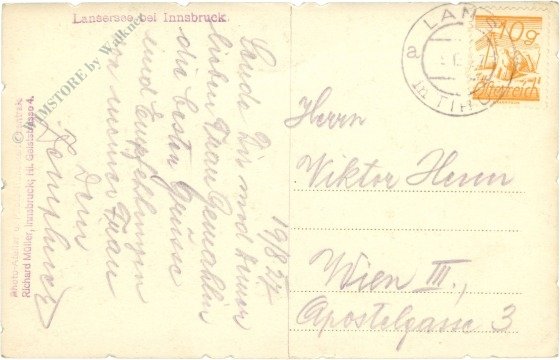 Lansersee bei Innsbruck.
19/8 27
Sende Dir und Deiner
lieben Frau Gemahlin
die besten Grüsse
und Empfehlungen
von meiner Frau
Dein
Richard Müller, Innsbruck, Hl. Geiststrasse 4.
©
MSTORE by Walkner
LANS
a
in TIROL
10g
Österreich
Herrn
Viktor
Wien III.,
Apostelgasse 3